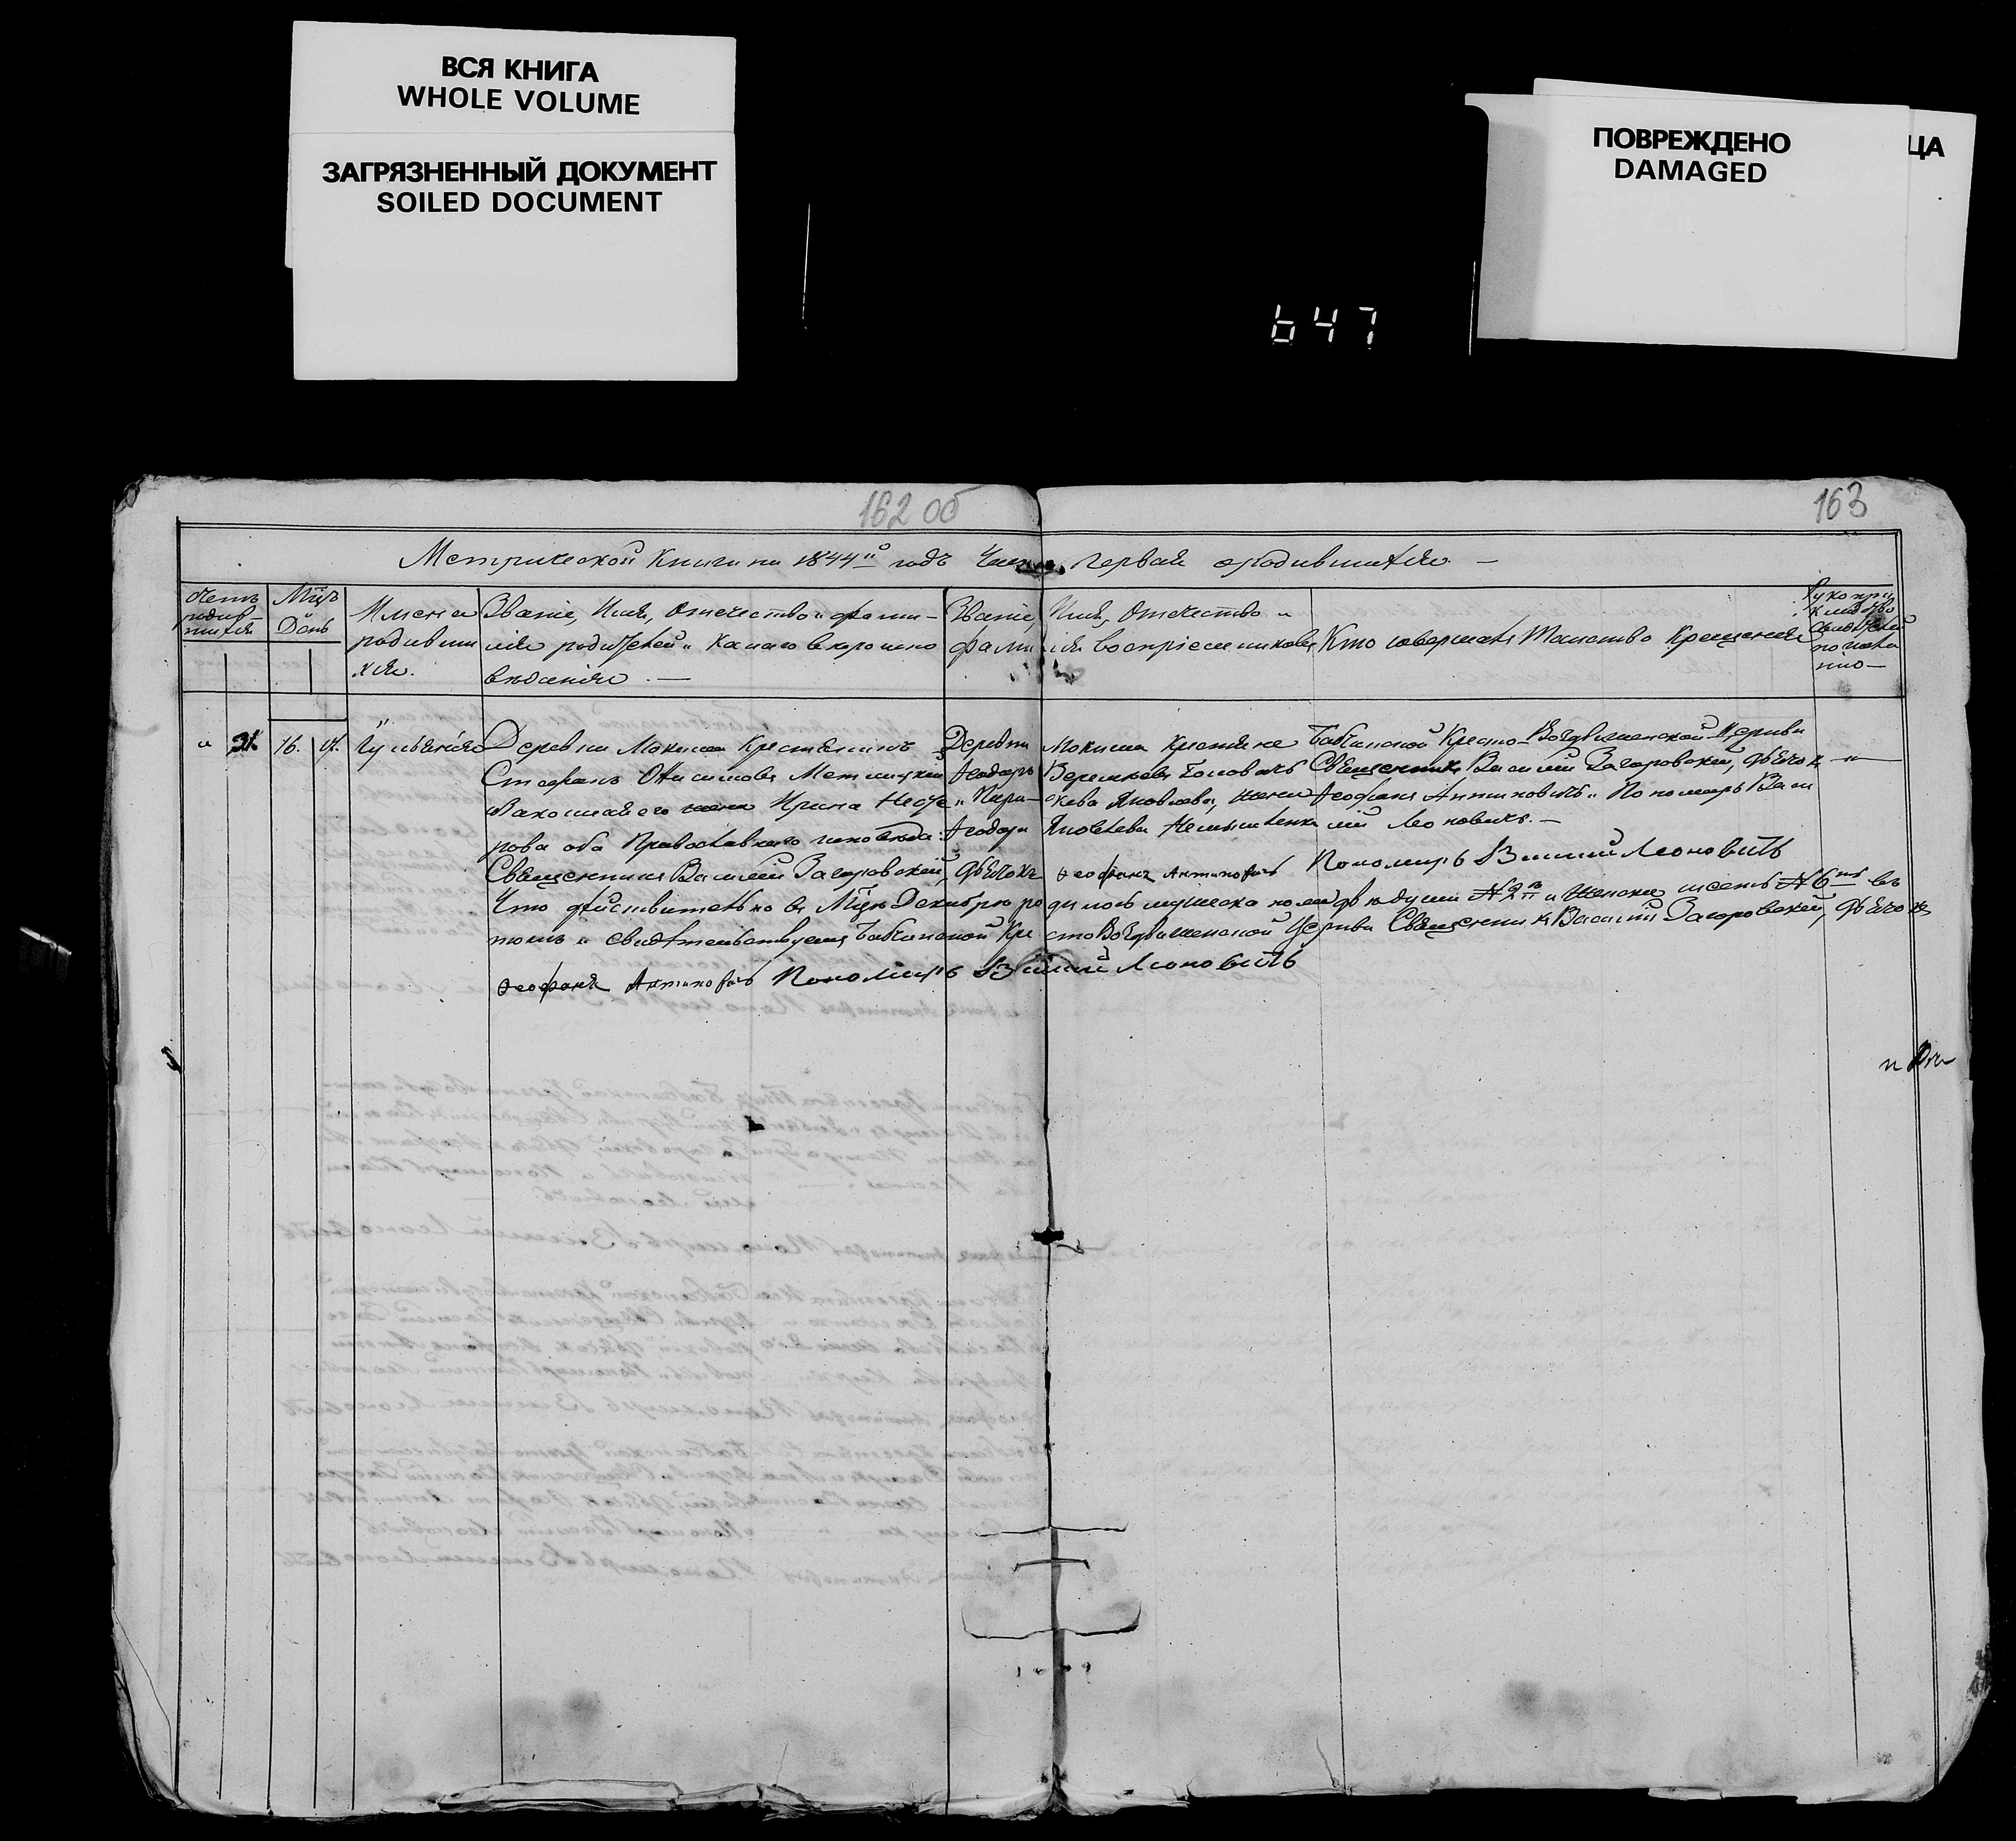 ВСЯ КНИГА
WHOLE VOLUME
ЗАГРЯЗНЕННЫЙ ДОКУМЕНТ
SOILED DOCUMENT
ПОВРЕЖДЕНО
DAMAGED
ЦА
647
162 об
163
Метрической Книги на 1844й годъ Часть первая о родившихся. —
Мцъ
День
Имена
родивши
хся.
Званіе, Имя, Отечество и фами-
лія родителей и какого вѣроиспо
вѣданія. —
Званіе, Имя, Отечество и
фамилія воспріемниковъ
Кто совершалъ Таинство Крещенія
Рукопри
кладство
свидѣтелей
по жела
нію —
" 31. 16. 17. Іульянія
Деревни Мокиша Крестьянинъ
Стефанъ Онисимовъ
законная его жена Ирина
рова оба Православнаго исповѣда:
Деревни Мокиша крестьяне
Ѳеодоръ
и Парас-
кева Яковлева, жена
Ѳеодора Яковлева
Бабчинской Кресто-Воздвиженской Церкви
Священникъ Василій Загоровскій, дьячокъ
Ѳеофанъ Антиповичъ и Пономарь Васи
лій Леоновичъ. —
Священникъ Василій Загоровскій, дьячокъ Ѳеофанъ Антиповичъ Пономарь Василій Леоновичъ
Что дѣйствительно въ Мцѣ Декабрѣ родилось мужеска пола двѣ души №2 и женска шесть №6ть въ
томъ и свидѣтельствуемъ Бабчинской КрестоВоздвиженской Церкви Священникъ Василій Загоровскій, дьячокъ
Ѳеофанъ Антиповичъ Пономарь Василій Леоновичъ